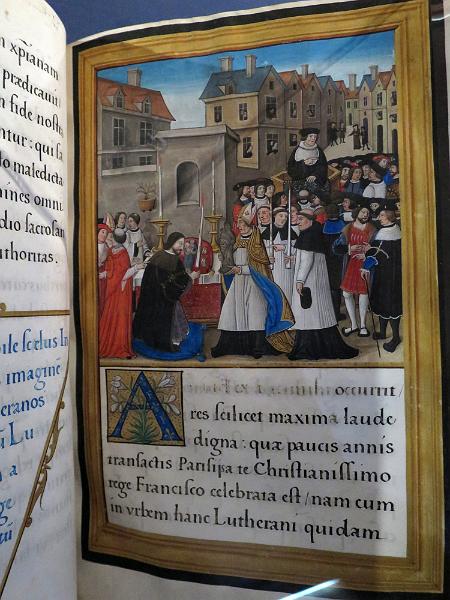 m xp̃ianam
prædicauit
n fide nostr
ntur: qui sa
to maledicta
mines omni
dio sacrosan
uthoritas.
ile scelus In
imagine
eranos
Lu
a
occurrit/
res scilicet maxima laude
digna: quæ paucis annis
transactis Parisijs a te Christianissimo
rege Francisco celebrata est/nam cum
in vrbem hanc Lutherani quidam